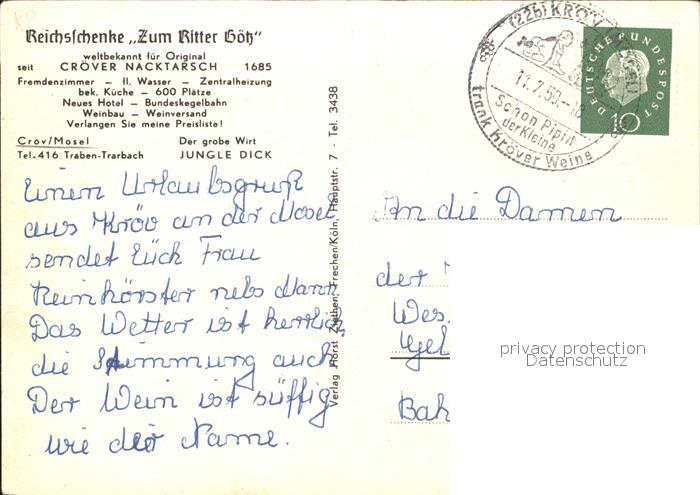 Reichsschenke „Zum Ritter Götz"
weltbekannt für Original
seit CRÖVER NACKTARSCH 1685
Fremdenzimmer — fl. Wasser — Zentralheizung
bek. Küche — 600 Plätze
Neues Hotel — Bundeskegelbahn
Weinbau — Weinversand
Verlangen Sie meine Preisliste!
Cröv/Mosel Der grobe Wirt
Tel. 416 Traben-Trarbach JUNGLE DICK
Einen Urlaubsgruß
aus Kröv an der Mosel
sendet Euch Frau
Reinhörster nebs Mann
Das Wetter ist herrlich
die Stimmung auch
Der Wein ist süffig
wie der Name.
Verlag Horst Ziethen, Frechen/Köln, Hauptstr. 7 · Tel. 3438
(22b) KRÖV
11.7.59
Schon Pipin
der Kleine
trank Kröver Weine
DEUTSCHE BUNDESPOST
10
An die Damen
der
Wes
Gel
Bah
privacy protection
Datenschutz
RP